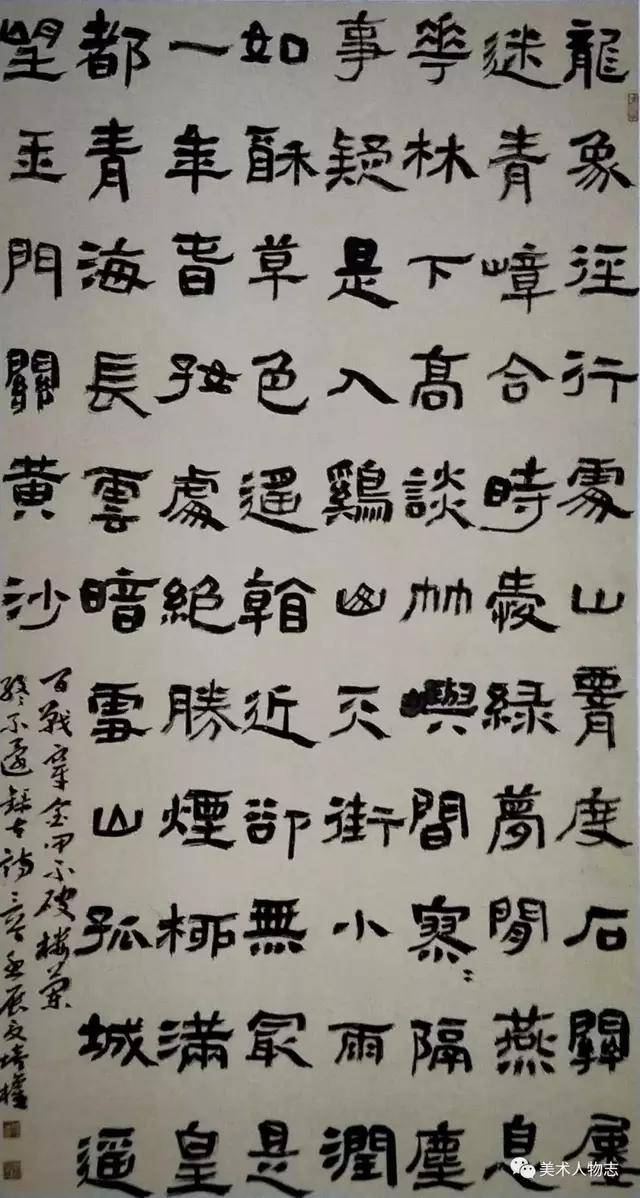 龍象徑行處山腰度石關屢
迷青嶂合時愛綠夢閒燕息
華林下高談竹嶼間寥〻隔塵
事疑是入鷄山天街小雨潤
如酥草色遥看近卻無最是
一年春好處絕勝煙柳滿皇
都青海長雲暗雪山孤城遥
望玉門關黃沙
百戰穿金甲不破樓蘭
終不還錄古詩三首壬辰夏培權
美术人物志